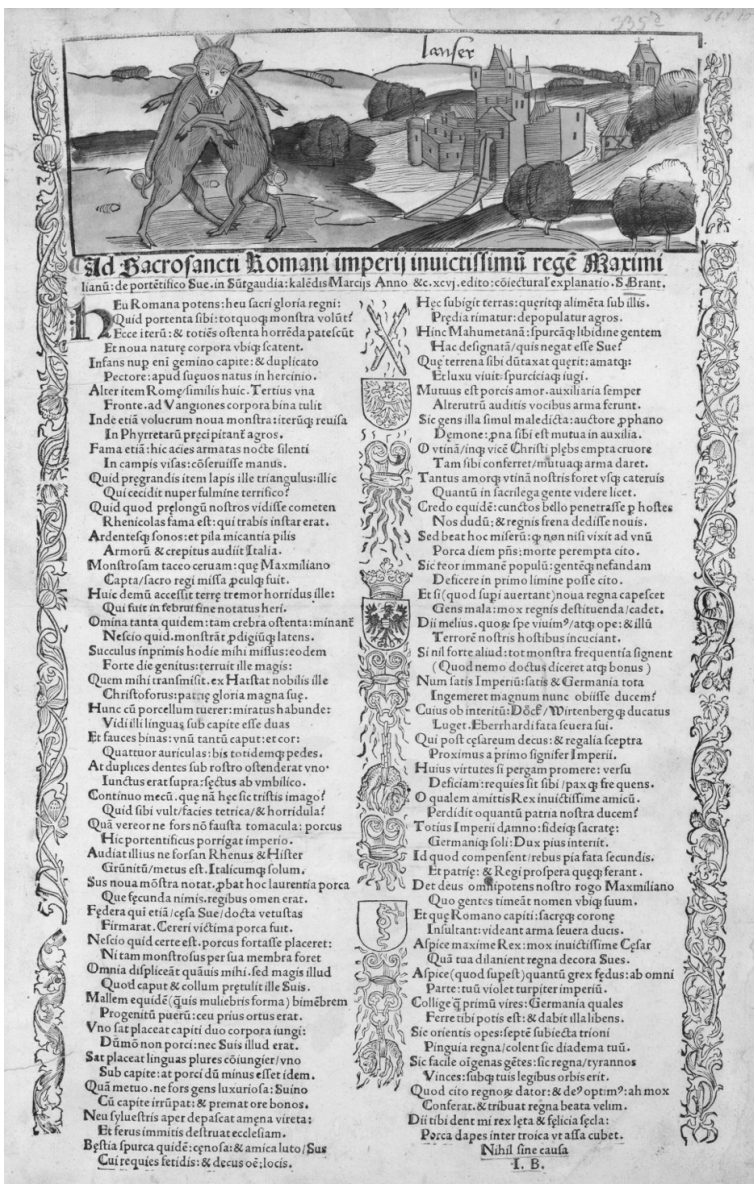 Lanser
Ad Sacrosancti Romani imperij inuictissimū regē Maximi
lianū: de portētifico Sue. in Sūrgaudia: kalēdis Marcijs Anno &c. xcvj. edito: cōiectural' explanatio. S. Brant.
HEu Romana potens: heu sacri gloria regni:
Quid portenta sibi: totquoqȝ monstra volūt?
Ecce iterū: & totiēs ostenta horrēda patescūt
Et noua naturę corpora vbiqȝ scatent.
Infans nup eni gemino capite: & duplicato
Pectore: apud sueuos natus in hercinio.
Alter item Romę/similis huic. Tertius vna
Fronte. ad Vangiones corpora bina tulit
Inde etiā volucrum noua monstra: iterūqȝ reuisa
In Phyrretarū pręcipitanť agros.
Fama etiā: hic acies armatas nocte silenti
In campis visas: cōseruisse manus.
Quid pręgrandis item lapis ille triangulus: illic
Qui cecidit nuper fulmine terrifico?
Quid quod pręlongū nostros vidisse cometen
Rhenicolas fama est: qui trabis instar erat.
Ardentesqȝ sonos: et pila micantia pilis
Armorū & crepitus audiit Italia.
Monstrosam taceo ceruam: quę Maxmiliano
Capta/sacro regi missa ꝓculqȝ fuit.
Huic demū accessit terrę tremor horridus ille:
Qui fuit in februi fine notatus heri.
Omina tanta quidem: tam crebra ostenta: minanť
Nescio quid. monstrāt ꝓdigiūqȝ latens.
Succulus inprimis hodie mihi missus: eodem
Forte die genitus: terruit ille magis:
Quem mihi transmisit. ex Hatstat nobilis ille
Christoforus: patrię gloria magna suę.
Hunc cū porcellum tuerer: miratus habunde:
Vidi illi linguas sub capite esse duas
Et fauces binas: vnū tantū caput: et cor:
Quattuor auriculas: bis totidemqȝ pedes.
At duplices dentes sub rostro ostenderat vno.
Iunctus erat supra: sectus ab vmbilico.
Continuo mecū. que nā hęc sic tristis imago?
Quid sibi vult/facies tetrica/& horridula?
Quā vereor ne fors nō fausta tomacula: porcus
Hic portentificus porrigat imperio.
Audiat illius ne forsan Rhenus & Hister
Grūnitū/metus est. Italicumqȝ solum.
Sus noua mōstra notat. ꝓbat hoc laurentia porca
Que fęcunda nimis. regibus omen erat.
Fędera qui etiā/cęsa Sue/docta vetustas
Firmarat. Cereri victima porca fuit.
Nescio quid certe est. porcus fortasse placeret:
Ni tam monstrosus per sua membra foret
Omnia displiceāt quāuis mihi. sed magis illud
Quod caput & collum prętulit ille Suis.
Mallem equidē (q̄uis muliebris forma) bimēbrem
Progenitū puerū: ceu prius ortus erat.
Vno sat placeat capiti duo corpora iungi:
Dūmō non porci: nec Suis illud erat.
Sat placeat linguas plures cōiungier/vno
Sub capite: at porci dū minus esset idem.
Quā metuo. ne fors gens luxuriosa: Suino
Cū capite irrūpat: & premat ore bonos.
Neu syluestris aper depascat amęna vireta:
Et ferus immitis destruat ecclesiam.
Bęstia spurca quidē: cęnosa: & amica luto/Sus
Cui requies fetidis: & decus oē: locis.
Hęc subigit terras: quęritqȝ alimēta sub illis.
Prędia rimatur: depopulatur agros.
Hinc Mahumetanā: spurcāqȝ libidine gentem
Hac designatā/quis negat esse Sue?
Quę terrena sibi dūtaxat quęrit: amatqȝ:
Et luxu viuit: spurciciaqȝ iugi.
Mutuus est porcis amor. auxiliaria semper
Alterutrū auditis vocibus arma ferunt.
Sic gens illa simul maledicta: auctore ꝓphano
Dęmone: ꝓna sibi est mutua in auxilia.
O vtinā/inqȝ vicē Christi plębs empta cruore
Tam sibi conferret/mutuaqȝ arma daret.
Tantus amorqȝ vtinā nostris foret vsqȝ cateruis
Quantū in sacrilega gente videre licet.
Credo equidē: cunctos bello penetrasse ꝑ hostes
Nos dudū: & regnis frena dedisse nouis.
Sed beat hoc miserū: qȝ non nisi vixit ad vnū
Porca diem pn̄s: morte perempta cito.
Sic reor immanē populū: gentēqȝ nefandam
Deficere in primo limine posse cito.
Et si (quod supi auertant) noua regna capescet
Gens mala: mox regnis destituenda/cadet.
Dii melius. quoꝝ spe viuimꝰ/atqȝ ope: & illū
Terrorē nostris hostibus incuciant.
Si nil forte aliud: tot monstra frequentia signent
(Quod nemo doctus diceret atqȝ bonus)
Num satis Imperiū: satis & Germania tota
Ingemeret magnum nunc obiisse ducem?
Cuius ob interitū: Dōck/Wirtenbergqȝ ducatus
Luget. Eberrhardi fata seuera sui.
Qui post cęsareum decus: & regalia sceptra
Proximus a primo signifer Imperii.
Huius virtutes si pergam promere: versu
Deficiam: requies sit sibi/paxqȝ frequens.
O qualem amittis Rex inuictissime amicū.
Perdidit o quantū patria nostra ducem?
Totius Imperii damno: fideiqȝ sacratę:
Germaniqȝ soli: Dux pius interiit.
Id quod compensent/rebus pia fata secundis.
Et patrię: & Regi prospera quęqȝ ferant.
Det deus omnipotens nostro rogo Maxmiliano
Quo gentes timeāt nomen vbiqȝ suum.
Et quę Romano capiti: sacręqȝ coronę
Insultant: videant arma seuera ducis.
Aspice maxime Rex: mox inuictissime Cęsar
Quā tua dilanient regna decora Sues.
Aspice (quod supest) quantū grex fędus: ab omni
Parte: tuū violet turpiter imperiū.
Collige q̄ primū vires: Germania quales
Ferre tibi potis est: & dabit illa libens.
Sic orientis opes: septē subiecta trioni
Pinguia regna/colent sic diadema tuū.
Sic facile oīgenas gētes: sic regna/tyrannos
Vinces: subqȝ tuis legibus orbis erit.
Quod cito regnoꝝ dator: & deꝰ optimꝰ: ah mox
Conferat. & tribuat regna beata velim.
Dii tibi dent mi rex lęta & felicia sęcla:
Porca dapes inter troica vt assa cubet.
Nihil sine causa
I. B.